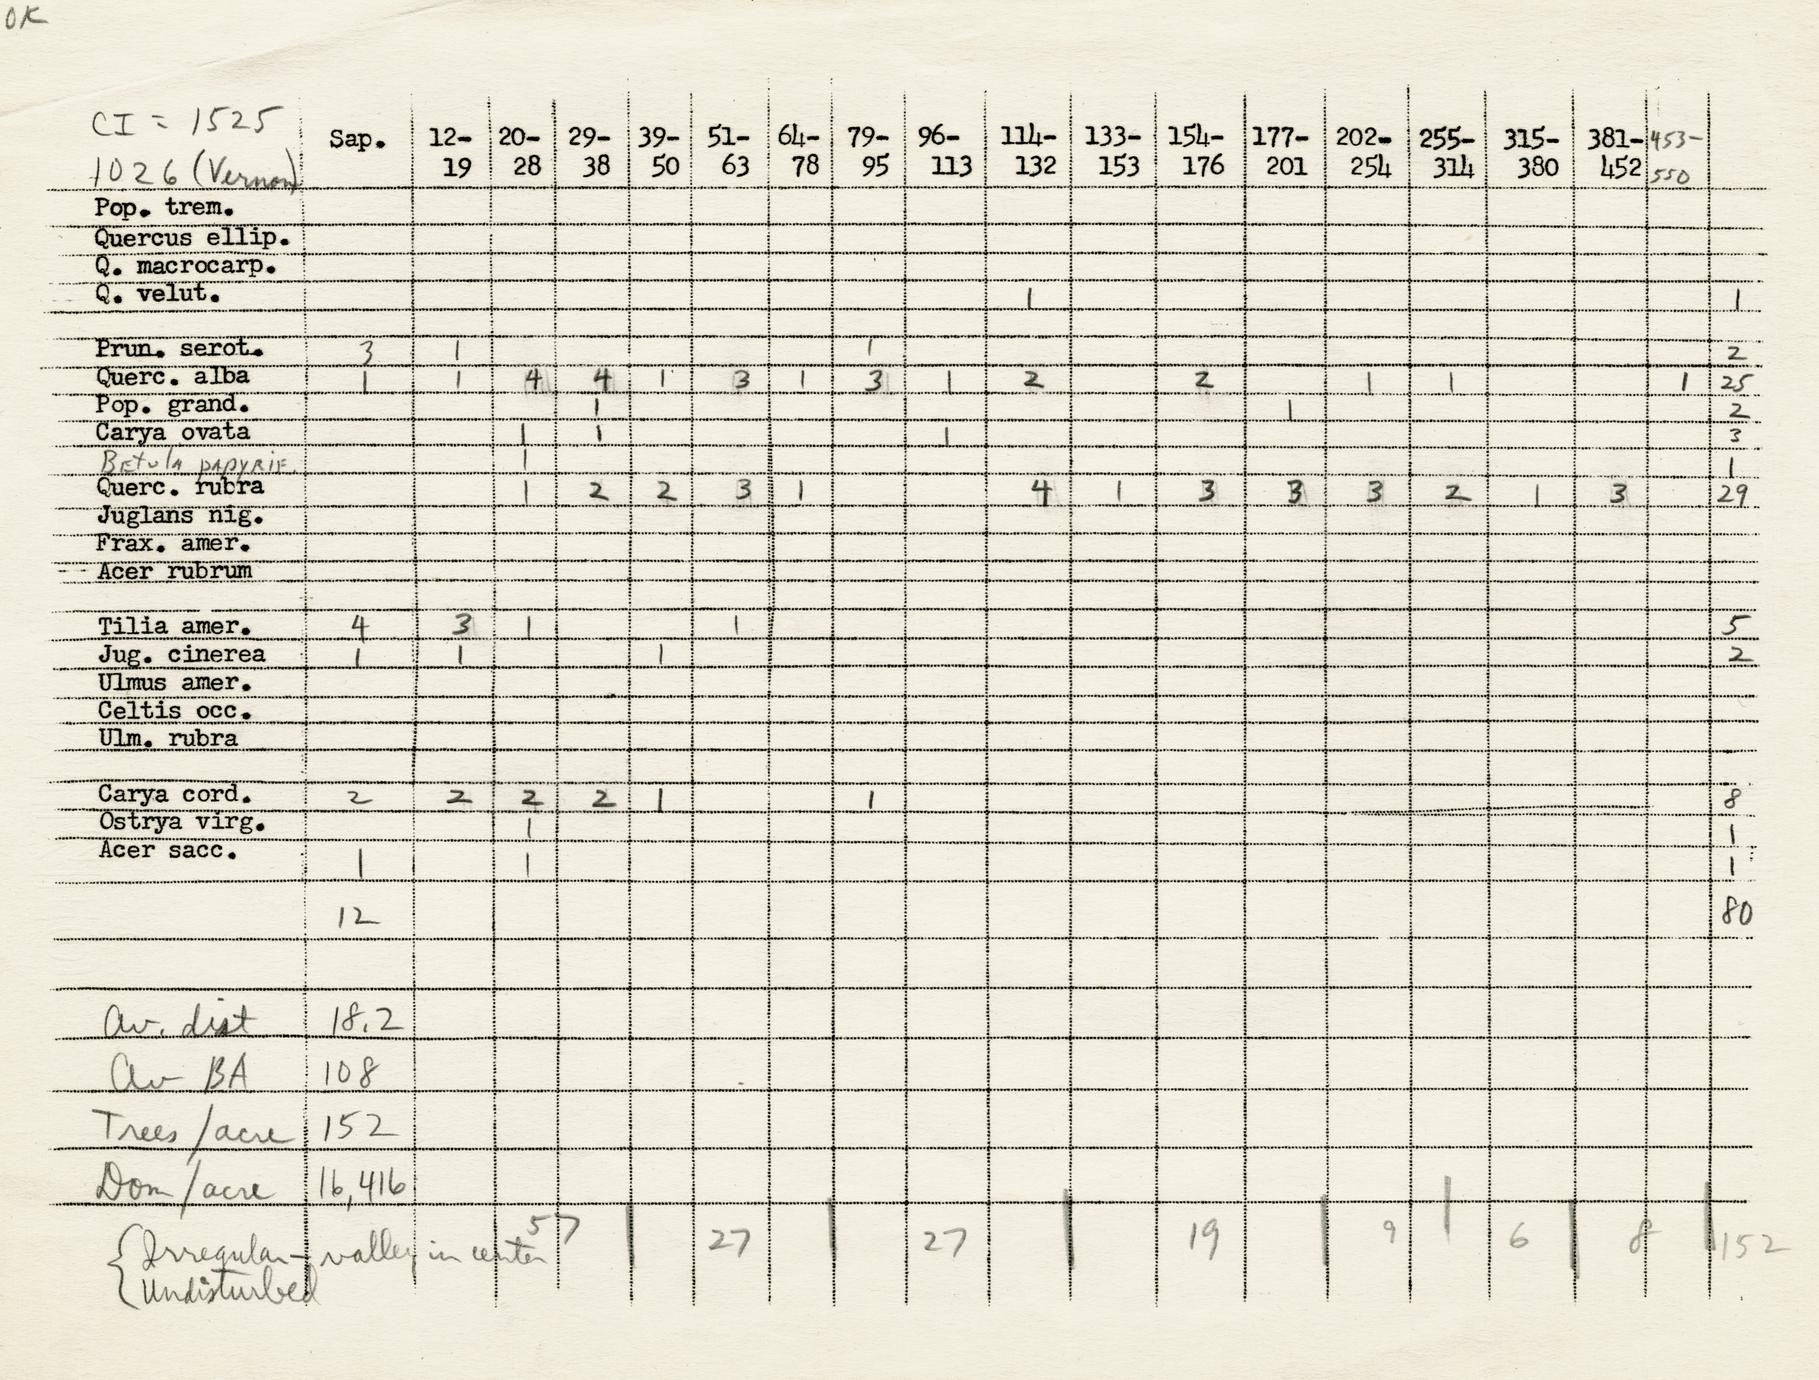 OK
CI = 1525 Sap. 12- 20- 29- 39- 51- 64- 79- 96- 114- 133- 154- 177- 202- 255- 315- 381- 453-
1026 (Vernon) 19 28 38 50 63 78 95 113 132 153 176 201 254 314 380 452 550
Pop. trem.
Quercus ellip.
Q. macrocarp.
Q. velut. 1 1
Prun. serot. 3 1 1 2
Querc. alba 1 1 4 4 1 3 1 3 1 2 2 1 1 1 25
Pop. grand. 1 1 2
Carya ovata 1 1 1 3
Betula papyrif. 1 1
Querc. rubra 1 2 2 3 1 4 1 3 3 3 2 1 3 29
Juglans nig.
Frax. amer.
Acer rubrum
Tilia amer. 4 3 1 1 5
Jug. cinerea 1 1 1 2
Ulmus amer.
Celtis occ.
Ulm. rubra
Carya cord. 2 2 2 2 1 1 8
Ostrya virg. 1 1
Acer sacc. 1 1 1
12 80
Av. dist 18.2
Av BA 108
Trees/acre 152
Dom/acre 16,416
57 27 27 19 9 6 8 152
{ Irregular - valley in center
Undisturbed